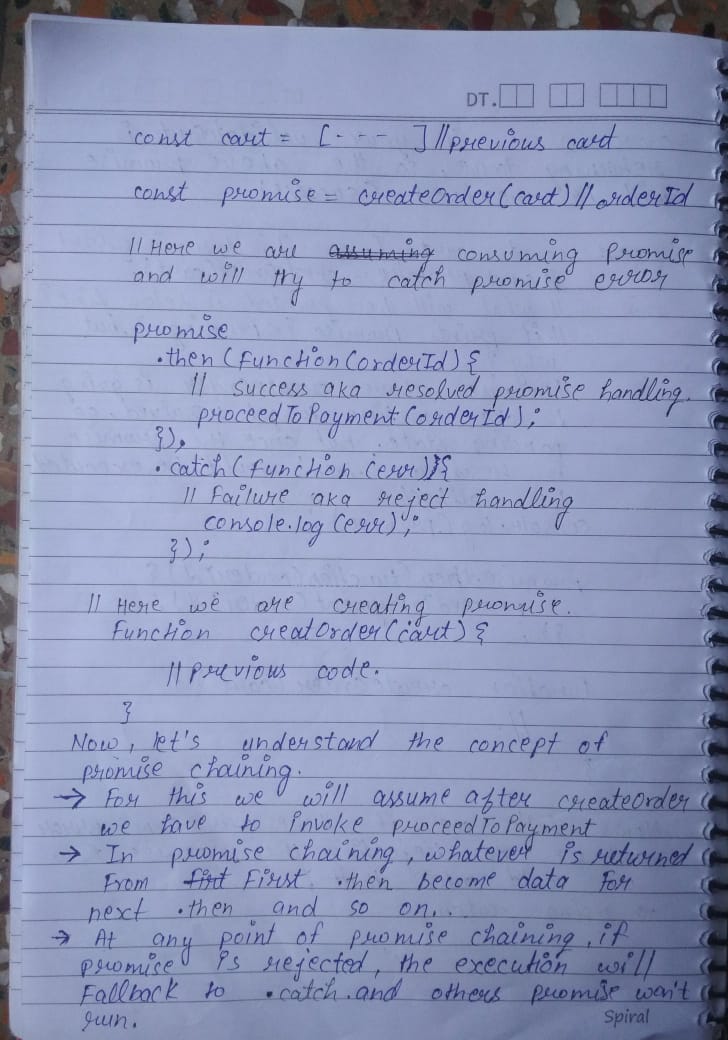 DT.
const cart = [- - - ] //previous card
const promise = createOrder(cart) // orderId
// Here we are assuming consuming Promise
and will try to catch promise error
promise
.then (function (orderId) {
// success aka resolved promise handling.
proceedToPayment (orderId);
}),
. catch ( function (err) }{
// Failure aka reject handling
console.log (err);
});
// Here we are creating promise.
Function creatOrder (cart) {
// previous code.
}
Now, let's understand the concept of
promise chaining.
→ For this we will assume after createorder
we have to invoke proceedToPayment
→ In promise chaining, whatever is returned
From first First .then become data For
next .then and so on..
→ At any point of promise chaining, if
promise is rejected, the execution will
Fallback to .catch and others promise won't
run.
Spiral